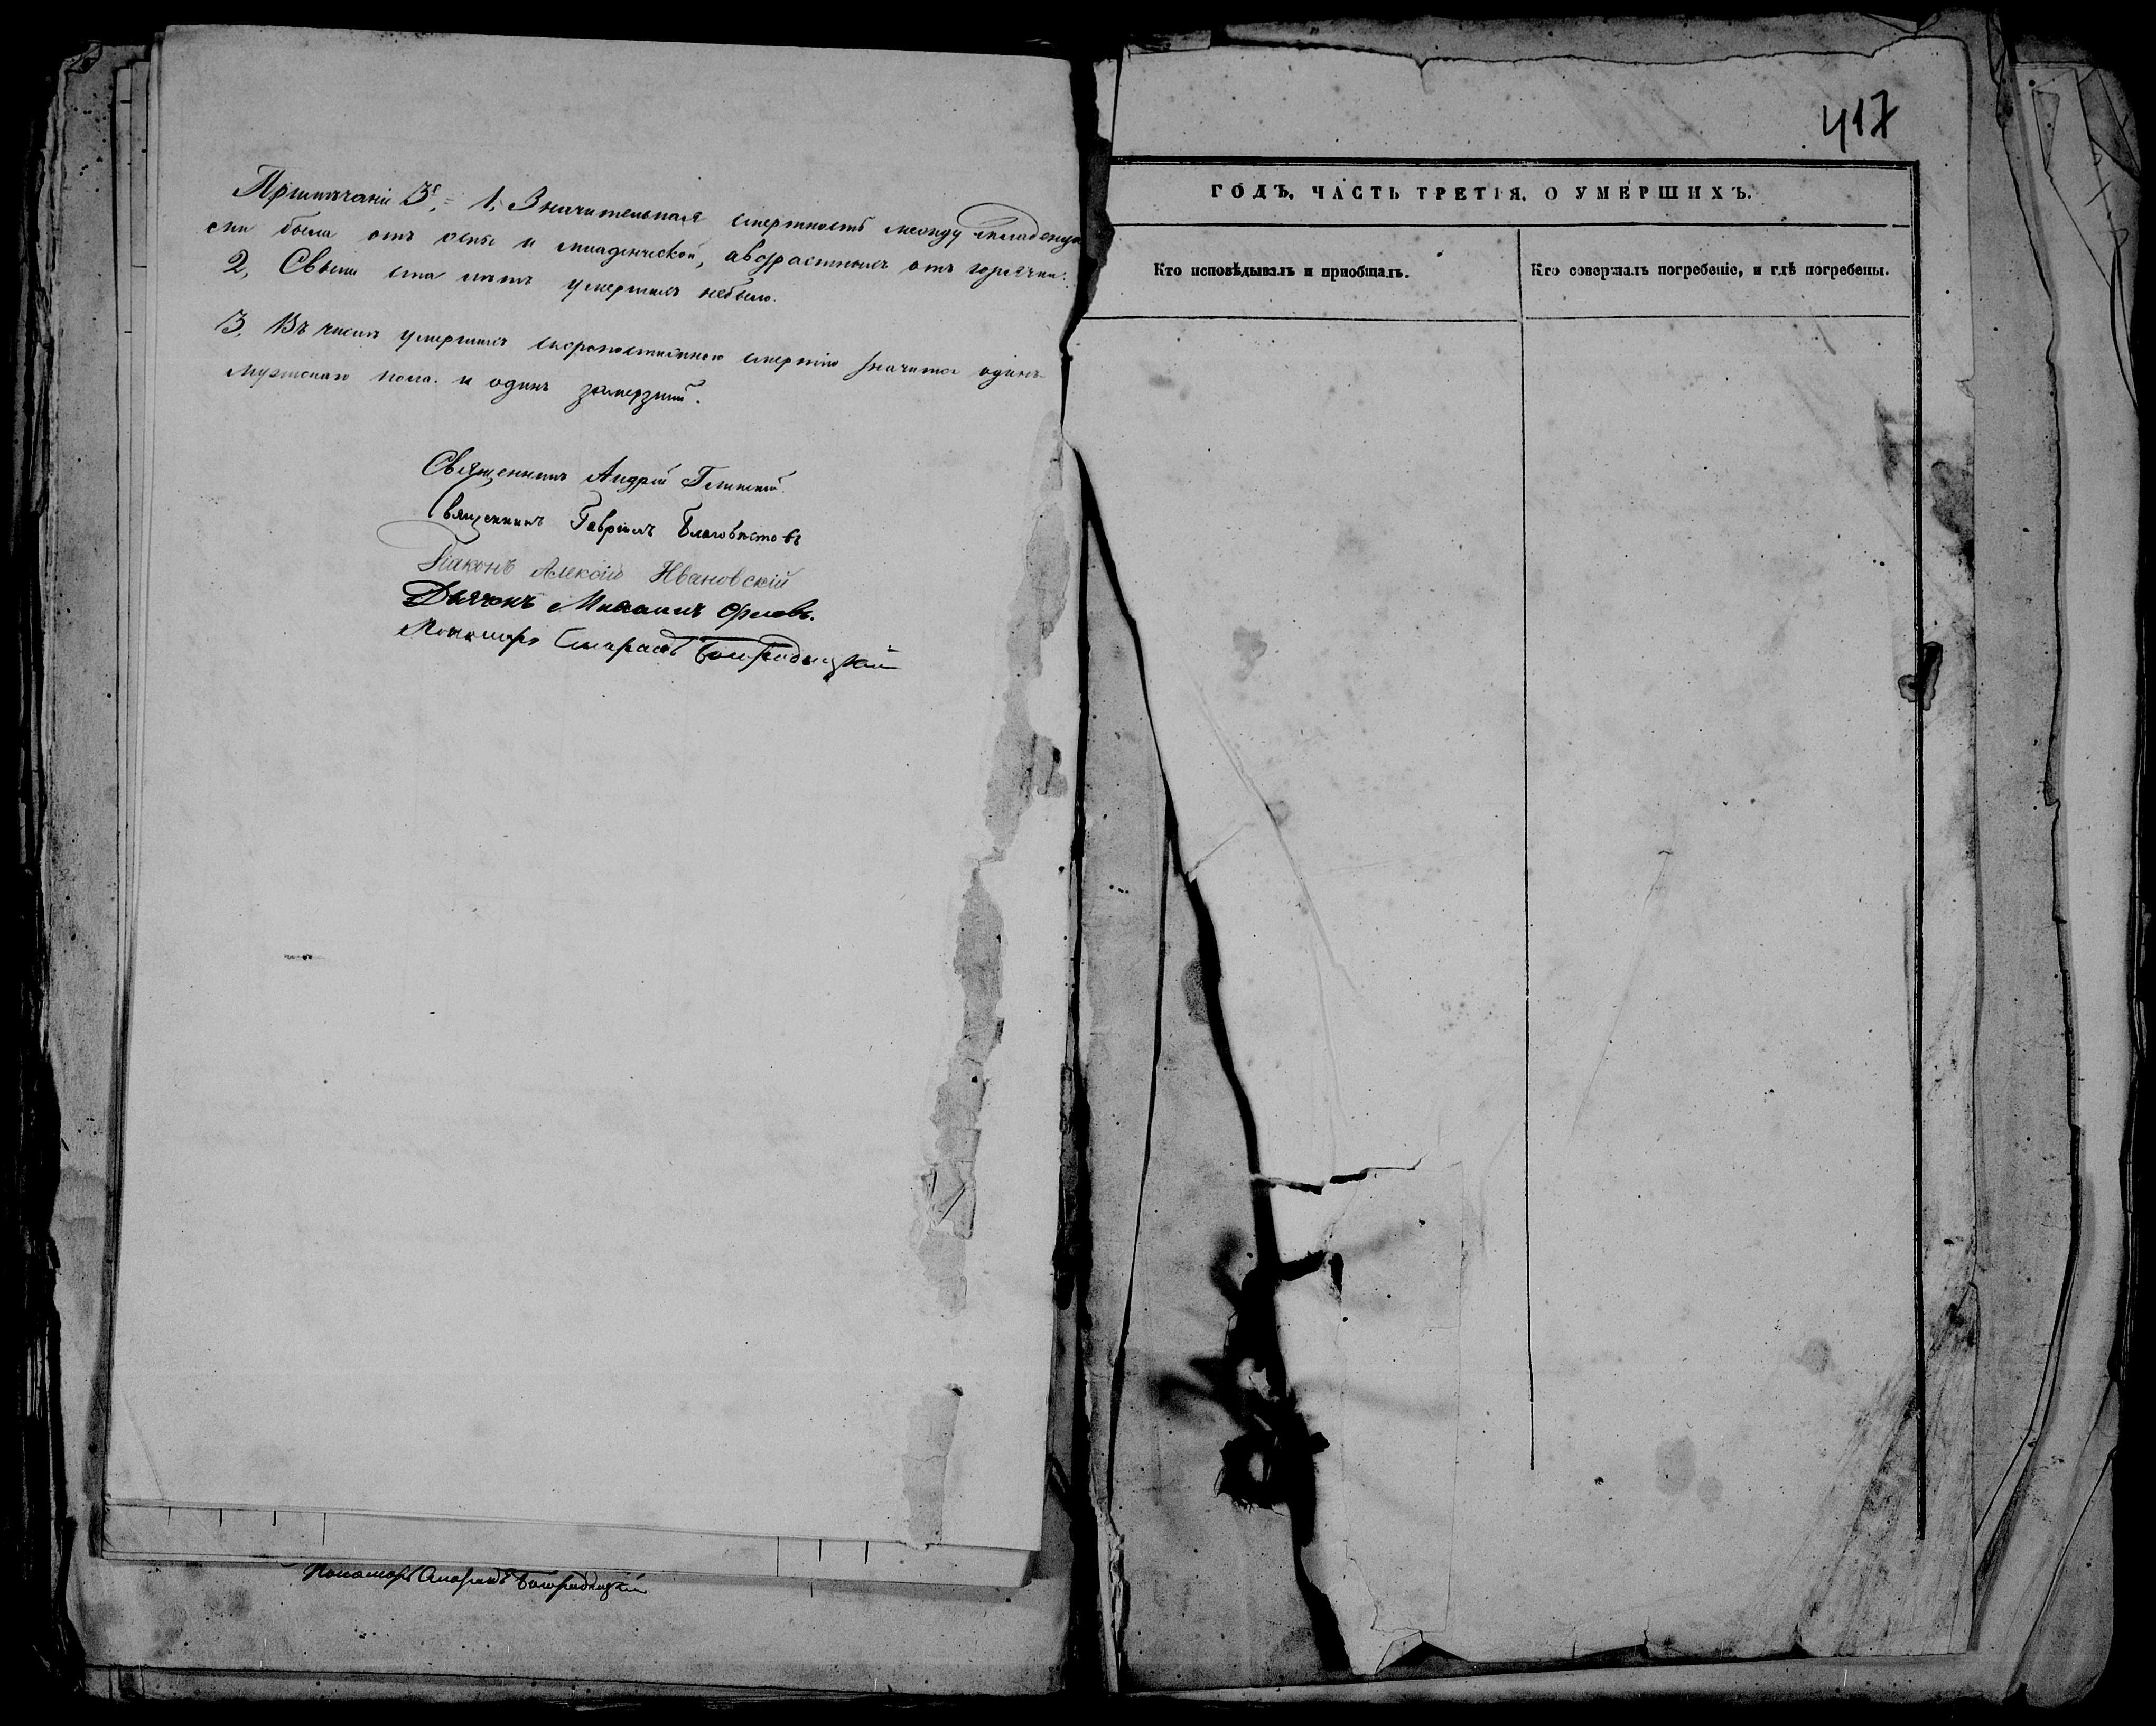 Примѣчаніе 3е, = 1, Значительная смертность между младенца
ми была отъ оспы и младенческой, авозрастныхъ отъ горячки.
2, Свыше ста лѣтъ умершихъ небыло.
3, Въ числѣ умершихъ скоропостижною смертію значится одинъ
мужскаго пола. и одинъ замерзшій.
Священникъ Андрей Глинскій.
Священникъ Гавріилъ Благовѣстовъ
Діаконъ Алексій Ивановскій
Дьячокъ Михаилъ Орловъ.
Пономарь Смарагдъ Богородицкій
Пономарь Смарагдъ Богородицкій
417
ГОДЪ, ЧАСТЬ ТРЕТІЯ, О УМЕРШИХЪ.
Кто исповѣдывалъ и пріобщалъ.
Кто совершалъ погребеніе, и гдѣ погребены.